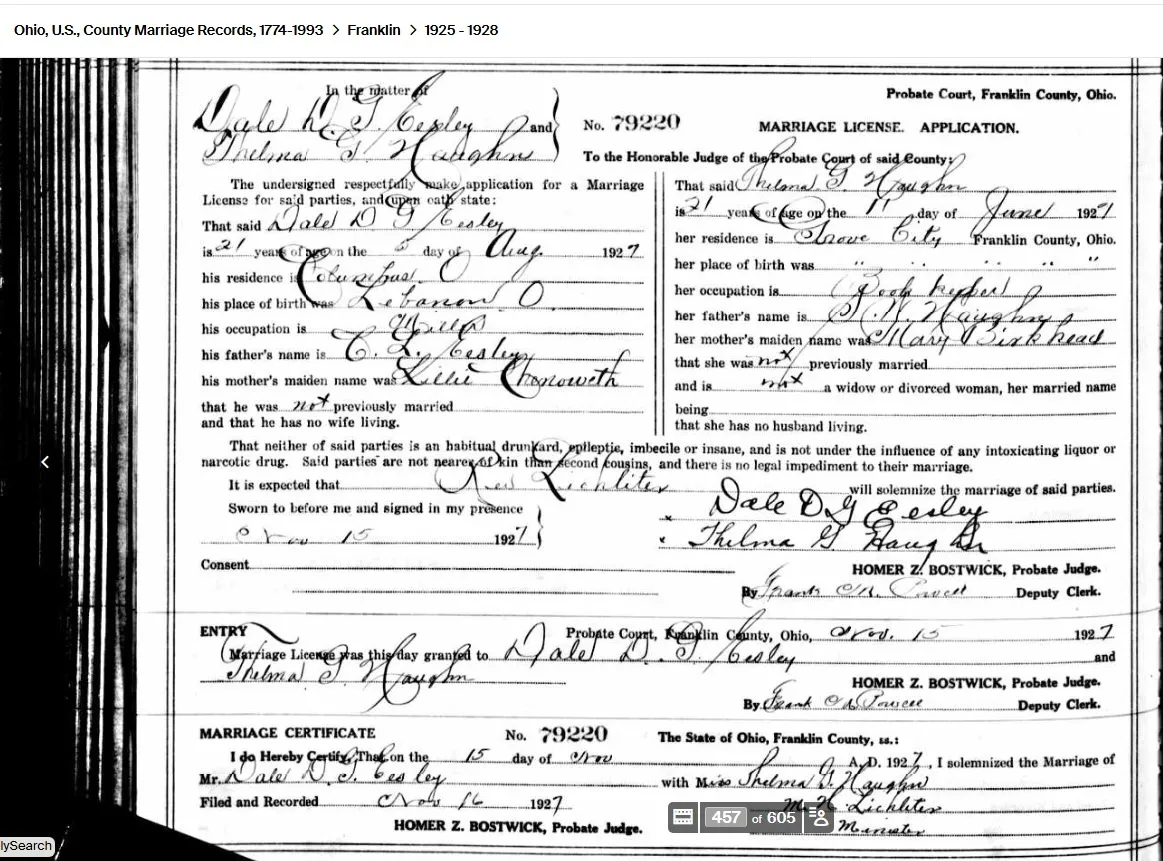 Ohio, U.S., County Marriage Records, 1774-1993 > Franklin > 1925 - 1928
In the matter of
Dale D. G. Eesley and
Thelma G. Haughn
No. 79220
Probate Court, Franklin County, Ohio.
MARRIAGE LICENSE. APPLICATION.
To the Honorable Judge of the Probate Court of said County:
The undersigned respectfully make application for a Marriage
License for said parties, and upon oath state:
That said Dale D G Eesley
is 21 years of age on the 5 day of Aug. 1927
his residence is Columbus
his place of birth was Lebanon O
his occupation is Miller
his father's name is C. L. Eesley
his mother's maiden name was Lillie Chenoweth
that he was not previously married
and that he has no wife living.
That said Thelma G. Haughn
is 21 years of age on the 11 day of June 1927
her residence is Grove City Franklin County, Ohio.
her place of birth was " " " " "
her occupation is Book keeper
her father's name is Haughn
her mother's maiden name was Mary Birkhead
that she was not previously married
and is not a widow or divorced woman, her married name
being
that she has no husband living.
That neither of said parties is an habitual drunkard, epileptic, imbecile or insane, and is not under the influence of any intoxicating liquor or
narcotic drug. Said parties are not nearer of kin than second cousins, and there is no legal impediment to their marriage.
It is expected that Rev Lichliter will solemnize the marriage of said parties.
Sworn to before me and signed in my presence
Nov 15 1927
x Dale D G Eesley
x Thelma G Haughn
Consent
HOMER Z. BOSTWICK, Probate Judge.
By Frank M. Powell Deputy Clerk.
ENTRY
Probate Court, Franklin County, Ohio, Nov. 15 1927
Marriage License was this day granted to Dale D. G. Eesley and
Thelma G Haughn
HOMER Z. BOSTWICK, Probate Judge.
By Frank M Powell Deputy Clerk.
MARRIAGE CERTIFICATE No. 79220 The State of Ohio, Franklin County, ss.:
I do Hereby Certify, That on the 15 day of Nov A. D. 1927, I solemnized the Marriage of
Mr. Dale D. G. Eesley with Miss Thelma G. Haughn
Filed and Recorded Nov 16 1927
M. H. Lichliter
Minister
HOMER Z. BOSTWICK, Probate Judge.
457 of 605
lySearch